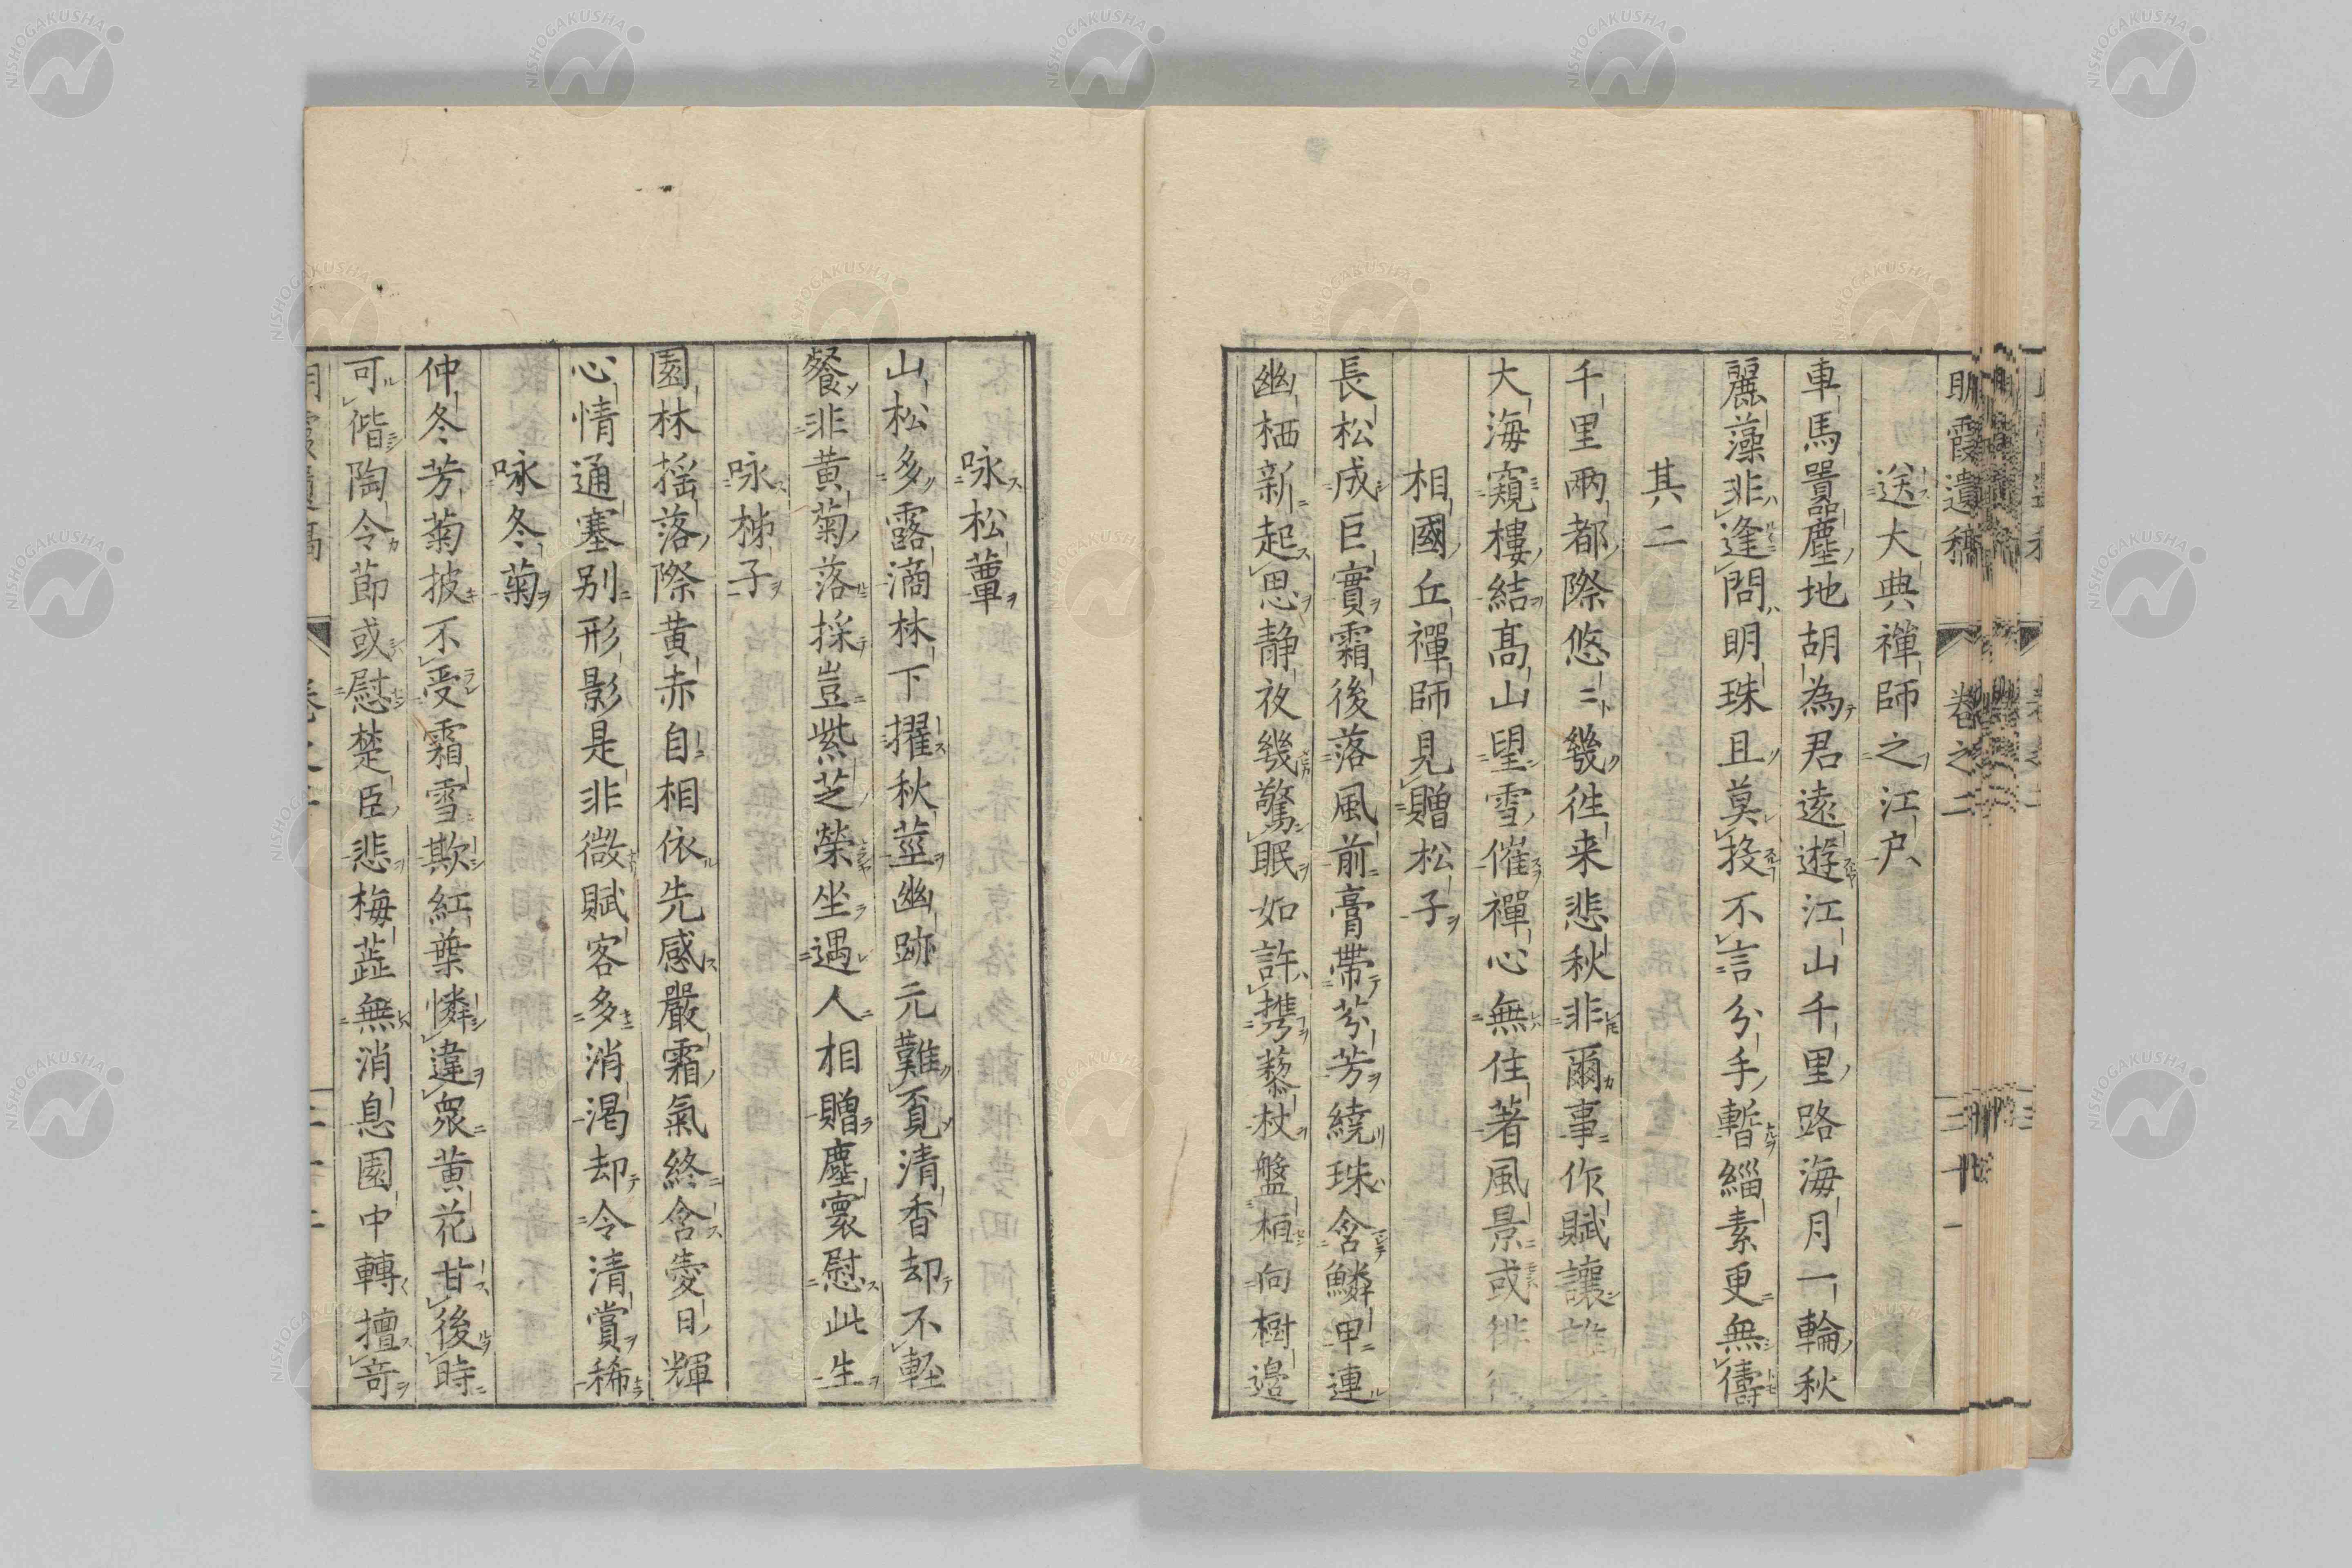 明霞遺稿 卷之二 三十一
送大典禪師之江戸
車馬囂塵地胡為君遠遊江山千里路海月一輪秋
麗藻非逢問明珠且莫投不言分手暫緇素更無儔
其二
千里兩都際悠〻幾徃来悲秋非爾事作賦讓
大海窺樓結髙山望雪催禪心無住著風景或徘
相國丘禪師見贈松子
長松成巨實霜後落風前膏帶芬芳繞珠含鱗甲連
幽栖新起思静夜幾驚眠如許携藜杖盤桓向樹邉
咏松蕈
山松多露滴林下擢秋莖幽跡元難覔清香却不軽
餐非黄菊落採豈紫芝榮坐遇人相贈塵寰慰此生
咏柹子
園林揺落際黄赤自相依先感嚴霜氣終含愛日輝
心情通塞别形影是非微賦客多消渇却令清賞稀
咏冬菊
仲冬芳菊披不受霜雪欺紅葉憐違衆黄花甘後時
可偕陶令節或慰楚臣悲梅蕋無消息園中轉擅竒
NISHOGAKUSHA